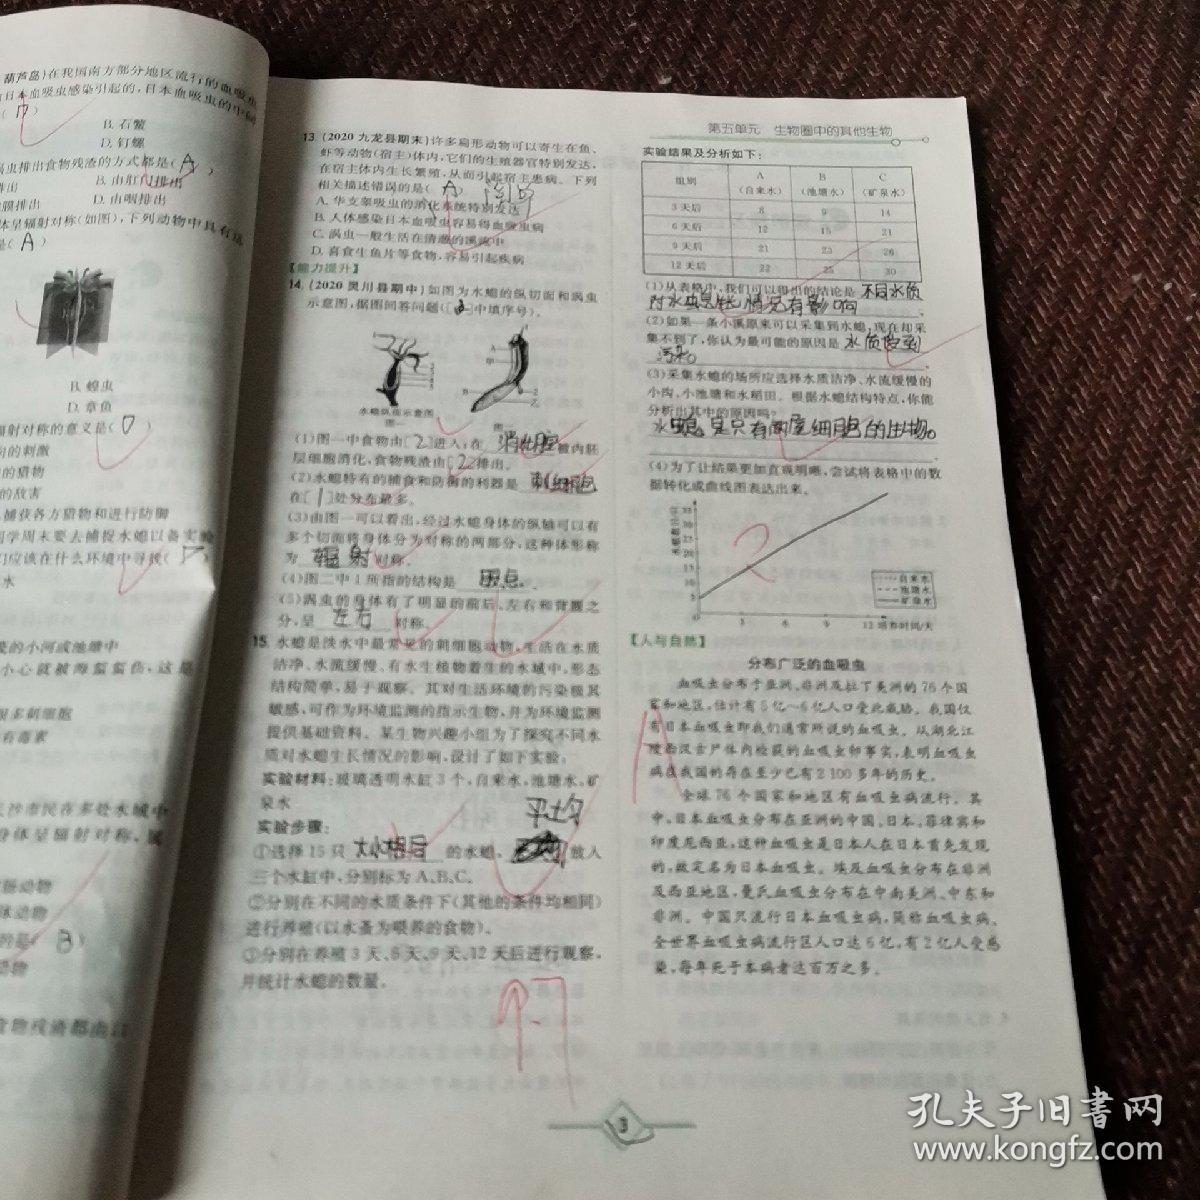 葫芦岛)在我国南方部分地区流行的血吸虫
日本血吸虫感染引起的,日本血吸虫的中间
B.石蟹
D.钉螺
虫排出食物残渣的方式都是( A )
排出 B.由肛门排出
膜排出 D.由咽排出
体呈辐射对称(如图),下列动物中具有这
是( A )
B.蝗虫
D.章鱼
辐射对称的意义是( D )
的刺激
的猎物
的敌害
捕获各方猎物和进行防御
同学周末要去捕捉水螅以备实验
们应该在什么环境中寻找(
水
的小河或池塘中
小心就被海蜇蜇伤,这是
很多刺细胞
有毒素
长沙市民在多处水域中
身体呈辐射对称,属
肠动物
体动物
的是( B )
动物
食物残渣都由口
13.(2020 九龙县期末)许多扁形动物可以寄生在鱼、
虾等动物(宿主)体内,它们的生殖器官特别发达,
在宿主体内生长繁殖,从而引起宿主患病。下列
相关描述错误的是( A )
A.华支睾吸虫的消化系统特别发达
B.人体感染日本血吸虫容易得血吸虫病
C.涡虫一般生活在清澈的溪流中
D.喜食生鱼片等食物,容易引起疾病
【能力提升】
14.(2020 灵川县期中)如图为水螅的纵切面和涡虫
示意图,据图回答问题([ ]中填序号)。
水螅纵面示意图
图一
图二
(1)图一中食物由[2]进入;在 消化腔 被内胚
层细胞消化,食物残渣由[2]排出。
(2)水螅特有的捕食和防御的利器是 刺细胞
在[1]处分布最多。
(3)由图一可以看出,经过水螅身体的纵轴可以有
多个切面将身体分为对称的两部分,这种体形称
为 辐射 对称。
(4)图二中 1 所指的结构是 眼点 。
(5)涡虫的身体有了明显的前后、左右和背腹之
分,呈 左右 对称。
15.水螅是淡水中最常见的刺细胞动物,生活在水质
洁净、水流缓慢、有水生植物着生的水域中,形态
结构简单,易于观察。其对生活环境的污染极其
敏感,可作为环境监测的指示生物,并为环境监测
提供基础资料。某生物兴趣小组为了探究不同水
质对水螅生长情况的影响,设计了如下实验。
实验材料:玻璃透明水缸 3 个,自来水,池塘水,矿
泉水
平均
实验步骤:
①选择 15 只 大小相同 的水螅, 放入
三个水缸中,分别标为 A、B、C。
②分别在不同的水质条件下(其他的条件均相同)
进行养殖(以水蚤为喂养的食物)。
③分别在养殖 3 天、6 天、9 天、12 天后进行观察,
并统计水螅的数量。
第五单元 生物圈中的其他生物
实验结果及分析如下:
组别 A(自来水) B(池塘水) C(矿泉水)
3 天后 8 9 14
6 天后 12 15 21
9 天后 21 23 26
12 天后 22 25 30
(1)从表格中,我们可以得出的结论是 不同水质
对水螅生长情况有影响 。
(2)如果一条小溪原来可以采集到水螅,现在却采
集不到了,你认为最可能的原因是 水质受到
污染 。
(3)采集水螅的场所应选择水质洁净、水流缓慢的
小沟、小池塘和水稻田。根据水螅结构特点,你能
分析出其中的原因吗?
水螅是只有两层细胞的生物。
(4)为了让结果更加直观明晰,尝试将表格中的数
据转化成曲线图表达出来。
自来水
池塘水
矿泉水
3 6 9 12 培养时间/天
【人与自然】
分布广泛的血吸虫
血吸虫分布于亚洲、非洲及拉丁美洲的 76 个国
家和地区,估计有 5 亿~6 亿人口受此威胁。我国仅
有日本血吸虫即我们通常所说的血吸虫。从湖北江
陵西汉古尸体内检获的血吸虫卵事实,表明血吸虫
病在我国的存在至少已有 2 100 多年的历史。
全球 76 个国家和地区有血吸虫病流行。其
中,日本血吸虫分布在亚洲的中国、日本、菲律宾和
印度尼西亚,这种血吸虫是日本人在日本首先发现
的,故定名为日本血吸虫。埃及血吸虫分布在非洲
及西亚地区,曼氏血吸虫分布在中南美洲、中东和
非洲。中国只流行日本血吸虫病,简称血吸虫病。
全世界血吸虫病流行区人口达 6 亿,有 2 亿人受感
染,每年死于本病者达百万之多。
3
孔夫子旧书网
www.kongfz.com